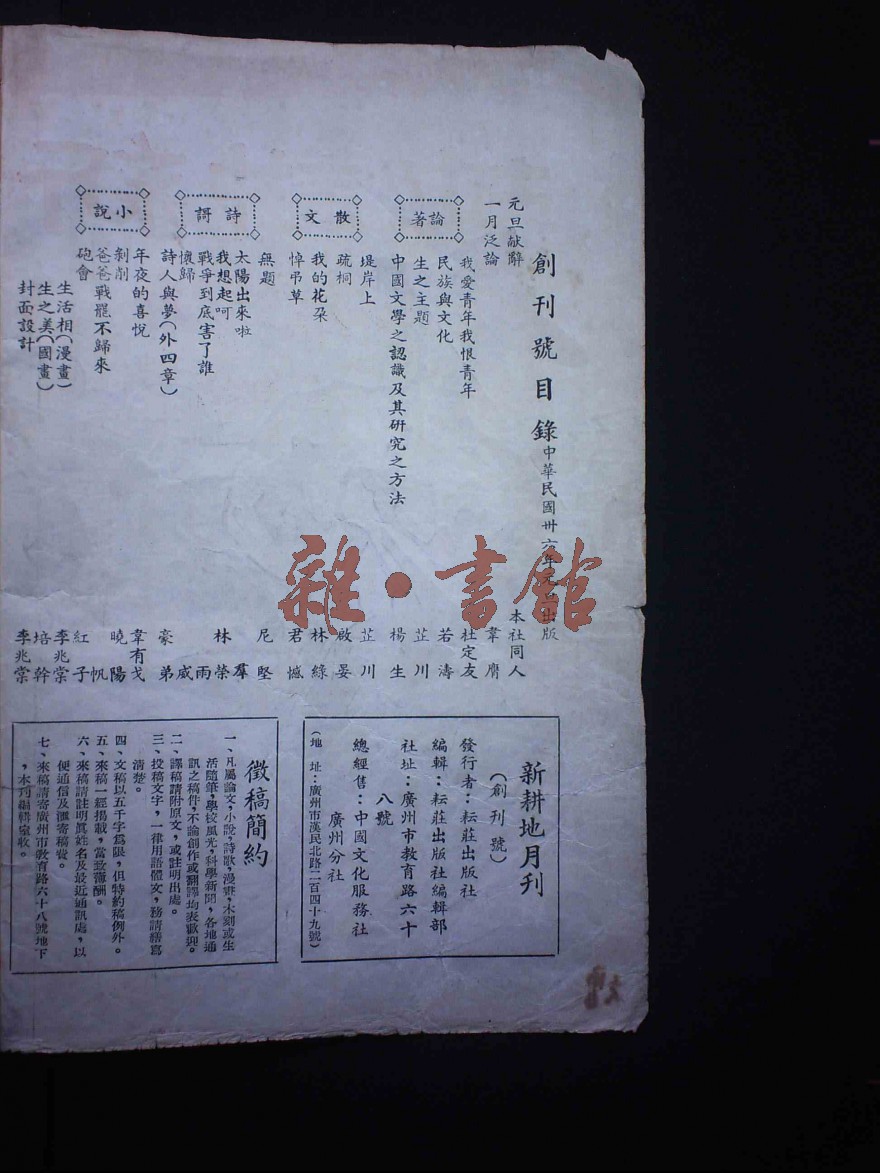 創刊號目錄
中華民國卅六年元旦出版
元旦献辭 本社同人
一月泛論 韋膺
論著
我愛青年我恨青年 杜定友
民族與文化 若濤
生之主題 芷川
中國文學之認識及其研究之方法 楊生
散文
堤岸上 芷川
疏桐 啟晏
我的花朶 林綠
悼弔草 君憾
詩謌
無題 尼堅
太陽出來啦 羣
我想起呵 林榮
戰爭到底害了誰 雨
懷歸 威
詩人與夢(外四章) 豪弟
小說
年夜的喜悅 韋有戈
剝削 曉陽
爸爸戰罷不歸來 帆
砲會 紅子
生活相(漫畫) 李兆棠
生之美(國畫) 培幹
封面設計 李兆棠
雜·書館
新耕地月刊
(創刊號)
發行者:耘莊出版社
編輯:耘莊出版社編輯部
社址:廣州市教育路六十
八號
總經售:中國文化服務社
廣州分社
(地址:廣州市漢民北路二百四十九號)
徵稿簡約
一、凡屬論文,小說,詩歌,漫畫,木刻或生
活隨筆,學校風光,科學新聞,各地通
訊之稿件,不論創作或翻譯均表歡迎。
二、譯稿請附原文,或註明出處。
三、投稿文字,一律用語體文,務請繕寫
清楚。
四、文稿以五千字爲限,但特約稿例外。
五、來稿一經揭載,當致薄酬。
六、來稿請註明眞姓名及最近通訊處,以
便通信及滙寄稿費。
七、來稿請寄廣州市敎育路六十八號地下
,本刊編輯室收。